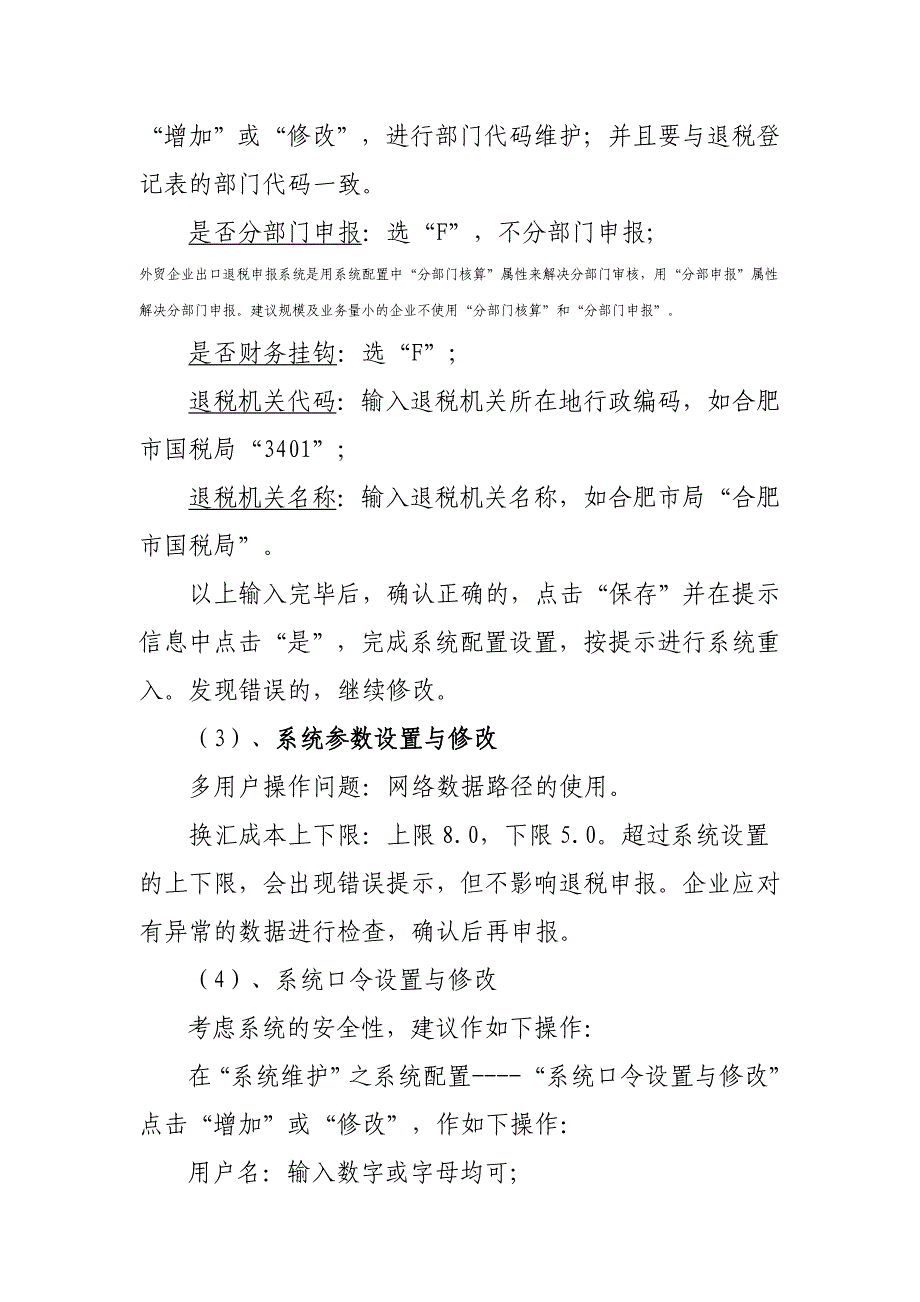 “增加”或“修改”，进行部门代码维护；并且要与退税登
记表的部门代码一致。
是否分部门申报：选“F”，不分部门申报；
外贸企业出口退税申报系统是用系统配置中“分部门核算”属性来解决分部门审核，用“分部申报”属性
解决分部门申报。建议规模及业务量小的企业不使用“分部门核算”和“分部门申报”。
是否财务挂钩：选“F”；
退税机关代码：输入退税机关所在地行政编码，如合肥
市国税局“3401”；
退税机关名称：输入退税机关名称，如合肥市局“合肥
市国税局”。
以上输入完毕后，确认正确的，点击“保存”并在提示
信息中点击“是”，完成系统配置设置，按提示进行系统重
入。发现错误的，继续修改。
（3）、系统参数设置与修改
多用户操作问题：网络数据路径的使用。
换汇成本上下限：上限 8.0，下限 5.0。超过系统设置
的上下限，会出现错误提示，但不影响退税申报。企业应对
有异常的数据进行检查，确认后再申报。
（4）、系统口令设置与修改
考虑系统的安全性，建议作如下操作：
在“系统维护”之系统配置----“系统口令设置与修改”
点击“增加”或“修改”，作如下操作：
用户名：输入数字或字母均可；